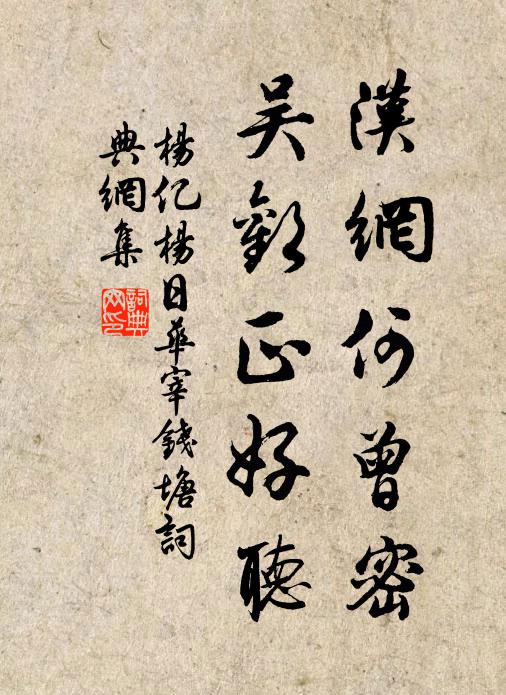 漢網何曾密
吳歈正好聽
楊億楊日華宰錢塘詞
典網集
詞典網印